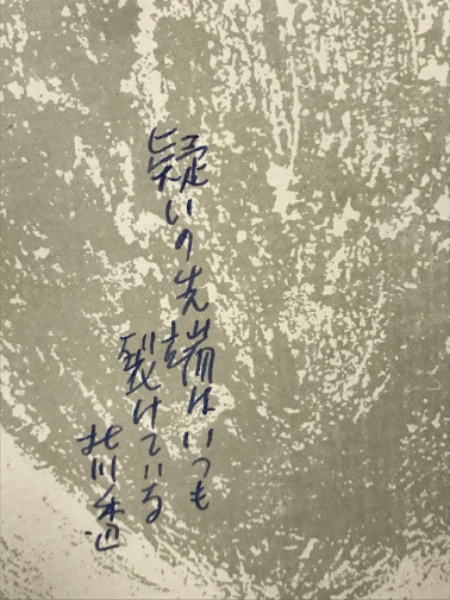 疑いの先端はいつも
裂けている
北川透